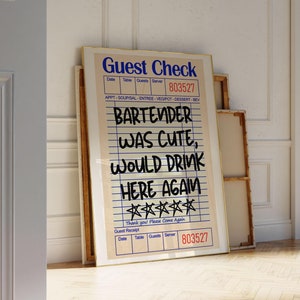 Guest Check
Date Table Guests Server 803527
APPT - SOUP/SAL - ENTREE - VEG/POT - DESSERT - BEV
BARTENDER
WAS CUTE,
WOULD DRINK
HERE AGAIN
☆☆☆☆☆
Thank you! Please Come Again
Guest Receipt
Date Table Guests Server 803527